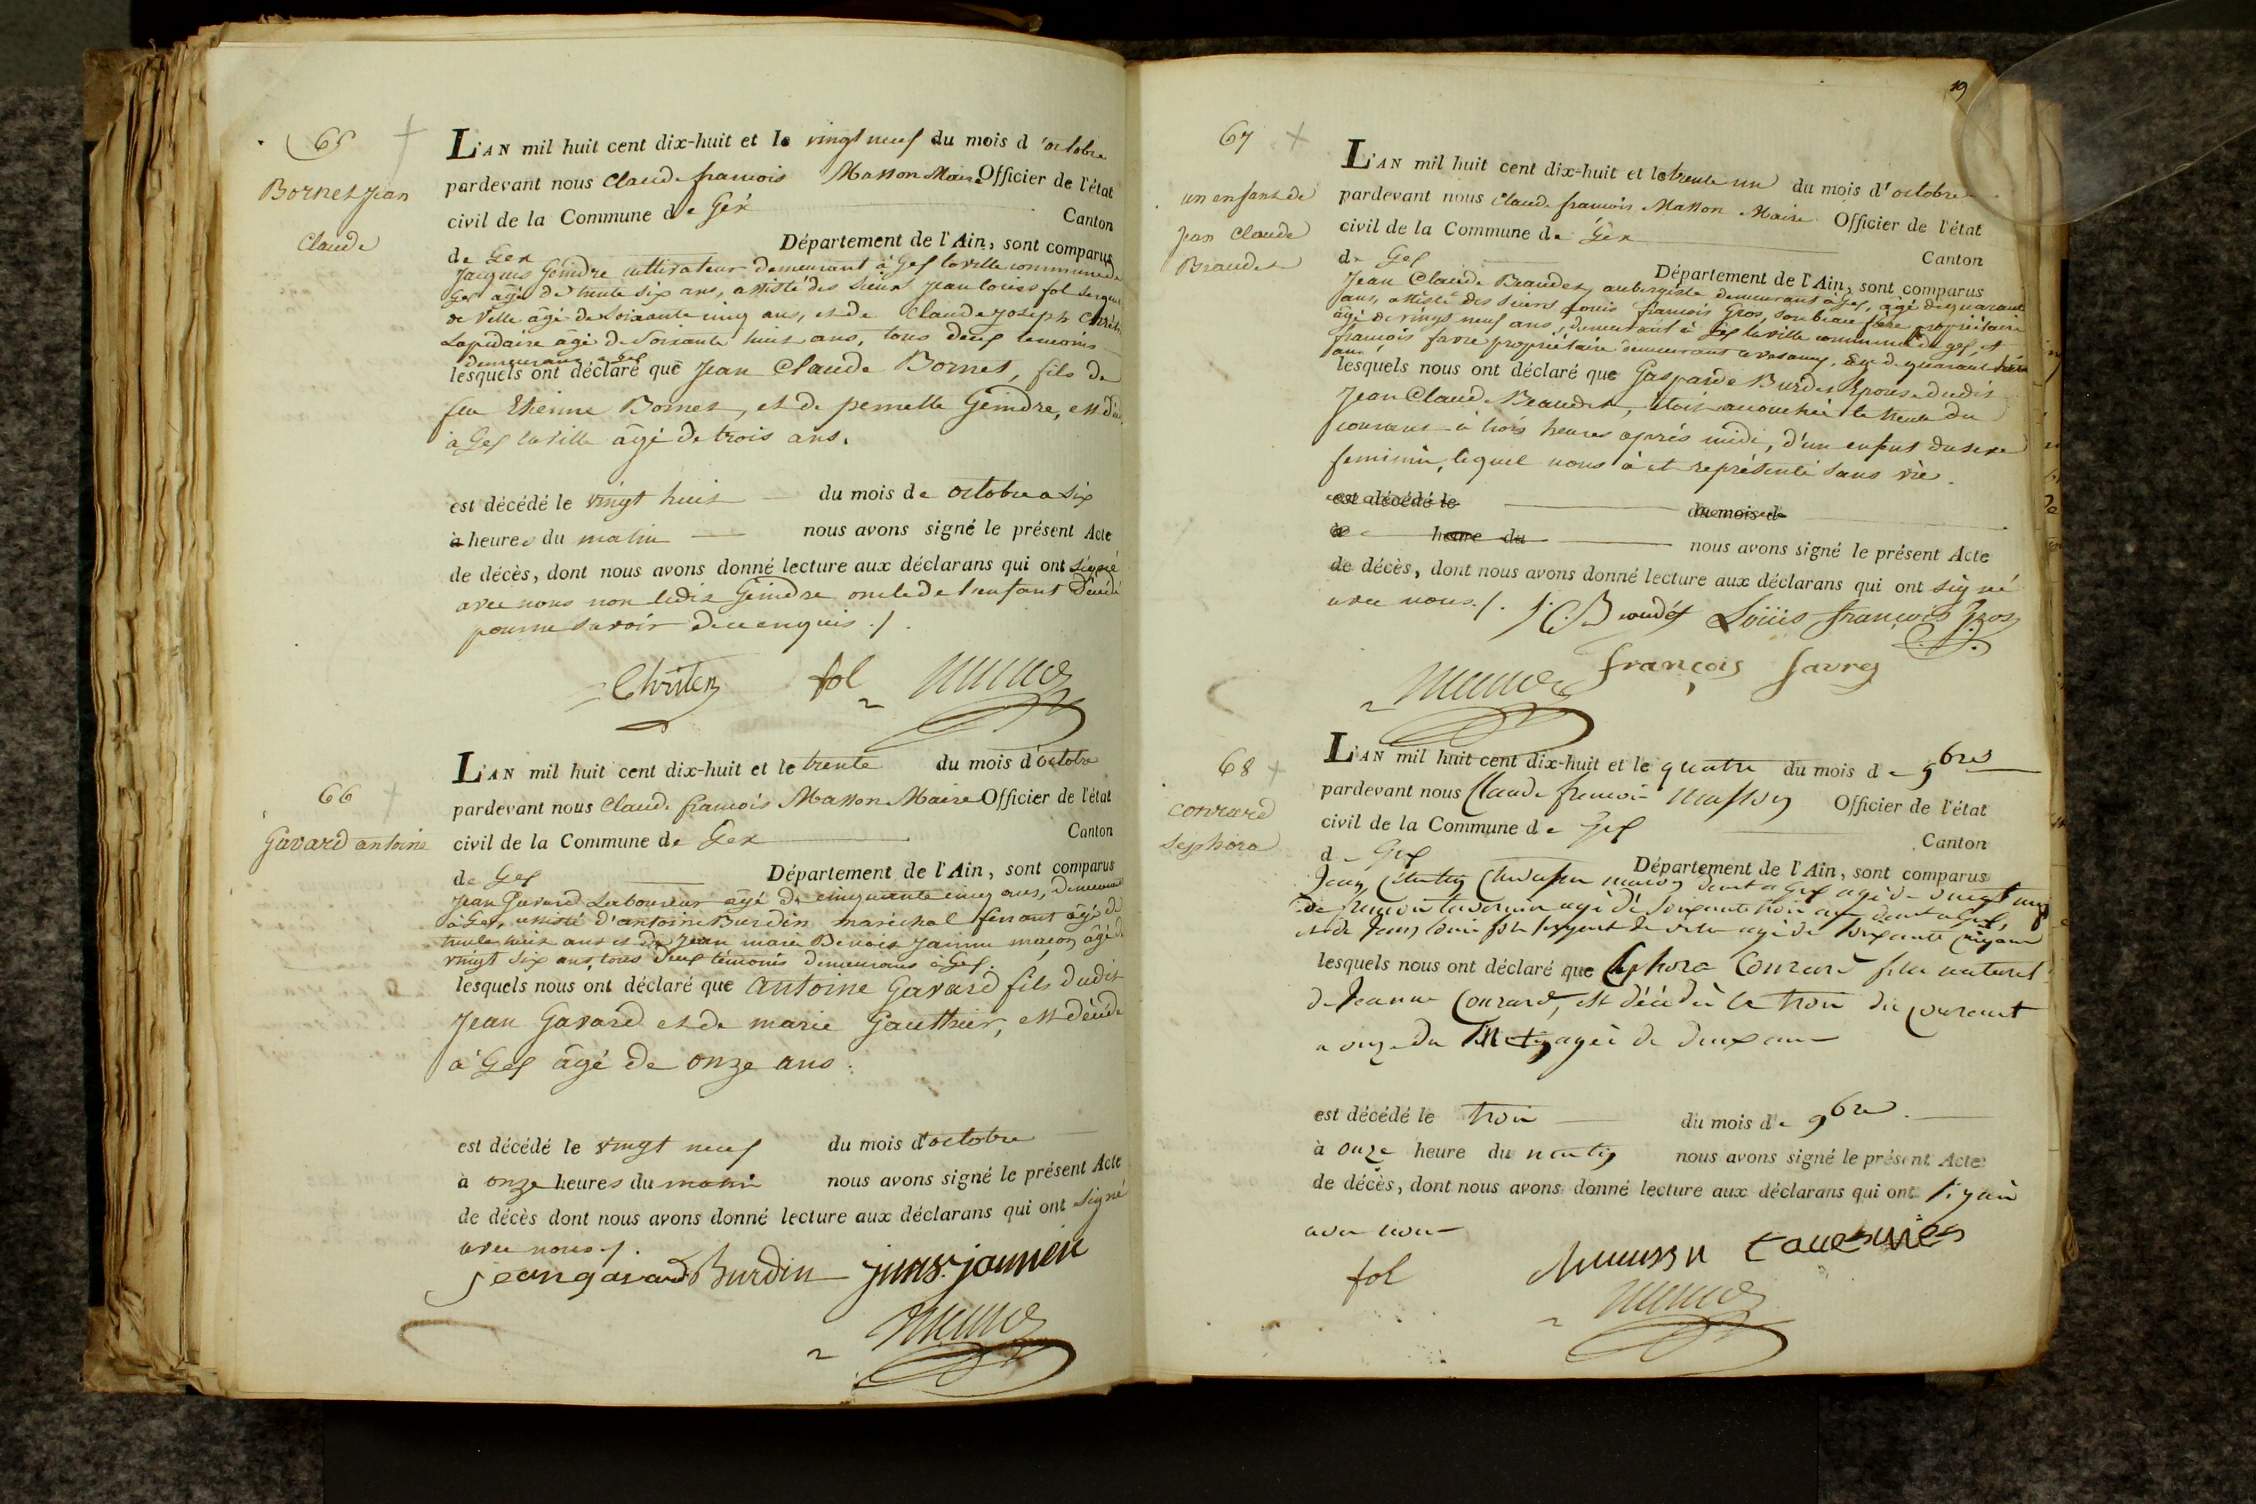 65
Bornet Jean
Claude
L'AN mil huit cent dix-huit et le vingt neuf du mois d'octobre
pardevant nous Claude francois Masson Maire Officier de l'état
civil de la Commune de Gex Canton
de Gex Département de l'Ain, sont comparus
Jacques Geindre cultivateur demeurant à Gex la ville commune de
Gex âgé de trente six ans, assisté des sieurs Jean louis fol sergent
de ville âgé de soixante cinq ans, et de Claude Joseph
Lapidaire âgé de soixante huit ans, tous deux temoins
demeurans à Gex
lesquels ont déclaré que Jean Claude Bornet, fils de
feu Etienne Bornet, et de pernette Geindre, est décédé
à Gex la ville âgé de trois ans.
est décédé le vingt huit du mois de octobre a six
à heures du matin nous avons signé le présent Acte
de décès, dont nous avons donné lecture aux déclarans qui ont signé
avec nous non ledit Geindre oncle de l'enfant décédé
pour ne savoir de ce enquis ./.
fol
66
Gavard antoine
L'AN mil huit cent dix-huit et le trente du mois d'octobre
pardevant nous Claude francois Masson Maire Officier de l'état
civil de la Commune de Gex Canton
de Gex Département de l'Ain, sont comparus
Jean Gavard Laboureur âgé de cinquante cinq ans, demeurant
à Gex, assisté d'antoine Burdin maréchal ferrant âgé de
trente huit ans et de Jean marie Benoit Jannin maçon âgé de
vingt six ans, tous deux témoins demeurans à Gex.
lesquels nous ont déclaré que Antoine Gavard fils dudit
Jean Gavard et de marie Gauthier, est décédé
à Gex âgé de onze ans.
est décédé le vingt neuf du mois d'octobre
à onze heures du matin nous avons signé le présent Acte
de décès dont nous avons donné lecture aux déclarans qui ont signé
avec nous ./.
jean gavard Burdin
19
67
un enfant de
Jean Claude
Beaudet
L'AN mil huit cent dix-huit et le trente un du mois d'octobre
pardevant nous Claude francois Masson Maire Officier de l'état
civil de la Commune de Gex
de Gex Canton
Département de l'Ain, sont comparus
Jean Claude Beaudet, aubergiste demeurant à Gex, âgé de quarante
ans, assisté des sieurs Louis francois Gros, son beau frère propriétaire
âgé de vingt neuf ans, demeurant à Gex la ville commune de gex, et
francois favre propriétaire demeurant âgé de quarante
ans
lesquels nous ont déclaré que Gasparde Burdet Epouse dudit
Jean Claude Beaudet, étoit accouchée le trente du
courant à trois heures après midi, d'un enfant du sexe
feminin, lequel nous à été représenté sans vie.
est décédé le du mois d
à heure du nous avons signé le présent Acte
de décès, dont nous avons donné lecture aux déclarans qui ont signé
avec nous ./. J. C. Beaudet Loüis françois Gros
françois favre
68
Conrard
Sephora
L'AN mil huit cent dix-huit et le quatre du mois de 9bre
pardevant nous Claude francois Masson Officier de l'état
civil de la Commune de Gex
de Gex Canton
Département de l'Ain, sont comparus
Jean maçon demt a Gex agé de vingt neuf
de agé de soixante trois ans demt a Gex,
et de Jean Louis fol sergent de ville agé de soixante cinq ans
lesquels nous ont déclaré que Sephora Conrard fille naturel
de Jeanne Conrard, est décédée le trois du courant
a onze du matin agée de deux ans
est décédé le trois du mois de 9bre
à onze heure du matin nous avons signé le présent Acte
de décès, dont nous avons donné lecture aux déclarans qui ont signé
avec nous
fol